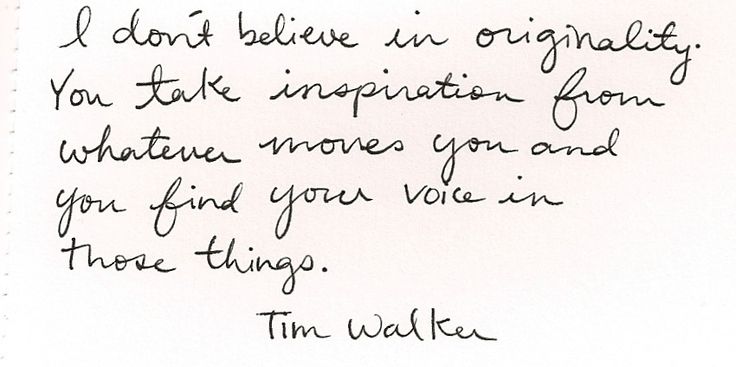 I don't believe in originality.
You take inspiration from
whatever moves you and
you find your voice in
those things.
Tim Walker